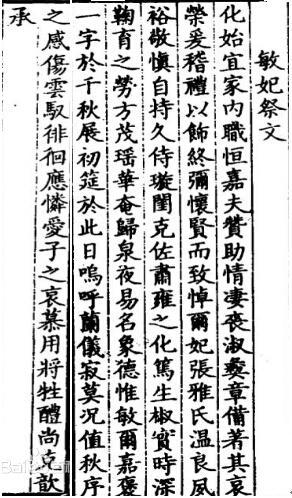 敏妃祭文
化始宜家內職恒嘉夫贊助情凄喪淑彝章備著其哀
榮爰稽禮以飾終彌懷賢而致悼爾妃張雅氏温良夙
裕敬慎自持久侍璇闈克佐肅雍之化篤生椒寔時深
鞠育之勞方茂瑶華奄歸泉夜易名象德惟敏爾嘉褒
一字於千秋展初筵於此日嗚呼蘭儀寂莫况值秋序
之感傷雲馭徘徊應憐愛子之哀慕用將牲醴尚克歆
承